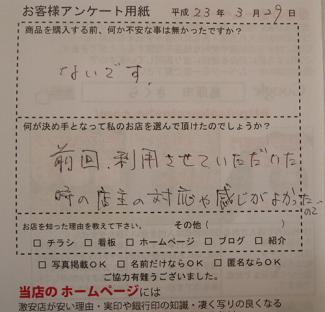 お客様アンケート用紙 平成 23 年 3 月 29 日
商品を購入する前、何か不安な事は無かったですか?
ないです.
何が決め手となって私のお店を選んで頂けたのでしょうか?
前回、利用させていただいた
時の店主の対応や感じがよかったので
お店を知った理由を教えて下さい。 その他( )
□ チラシ □ 看板 □ ホームページ □ ブログ □ 紹介
□ 写真掲載もOK □ 名前だけならOK □ 匿名ならOK
ご協力有難うございました。
当店の ホームページには
激安店が安い理由・実印や銀行印の知識・凄く写りの良くなる